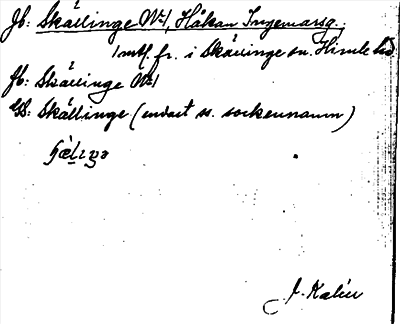 Jb: Skällinge No 1, Håkan Ingemarsg.:
1 mtl. fr. i Skällinge sn. Himle hd
fb: Skällinge No 1
GS: Skällinge (endast ss. sockennamn)
J. Kalén